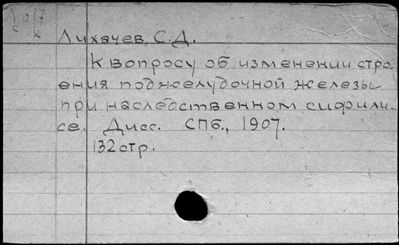 Лихачев, С.Д.
К вопросу об изменении стро
ения поджелудочной железы
при наследственном сифили-
се. Дисс. СПб., 1907.
132 стр.